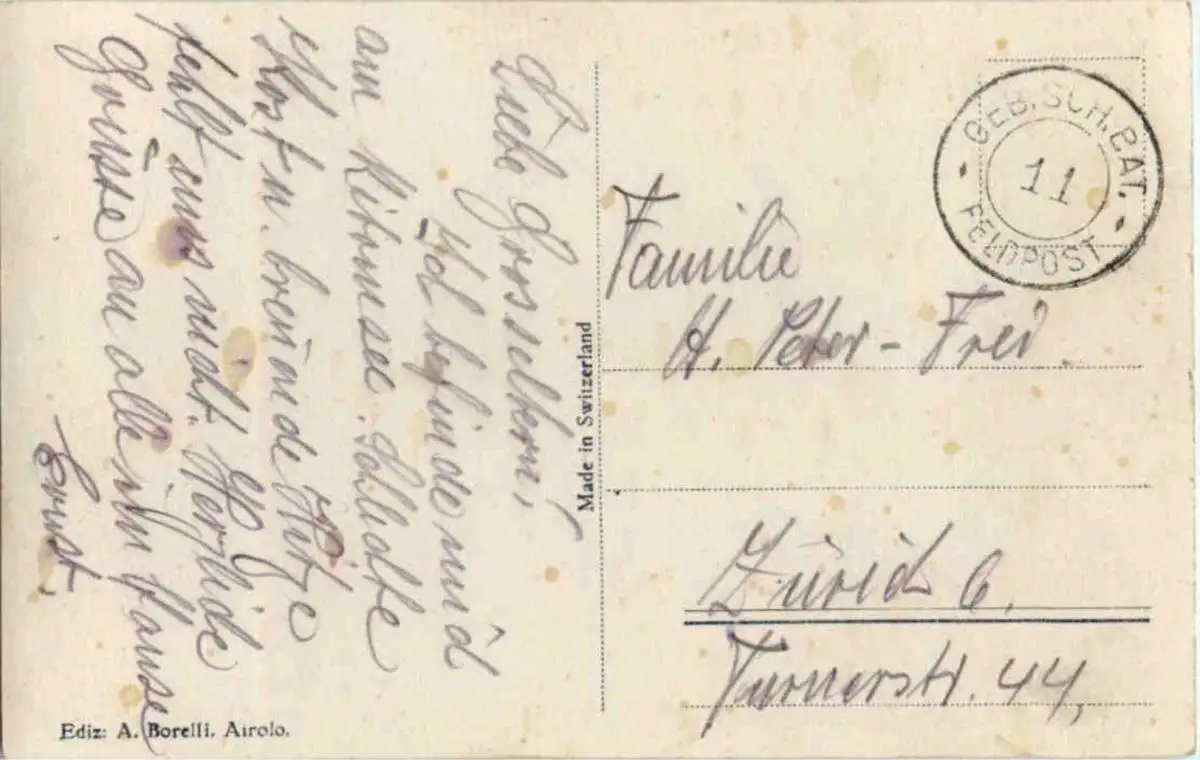 Liebe Grosseltern!
Ich befinde mich
am Ritomsee. Schlechte
Kost u. brennende Hitze
fehlt uns nicht. Herzliche
Grüsse an alle im Hause
Ernst.
Made in Switzerland
Ediz: A. Borelli, Airolo.
GEB. SCH. BAT.
11
FELDPOST
Familie
H. Peter-Frei.
Zürich 6.
Turnerstr. 44,